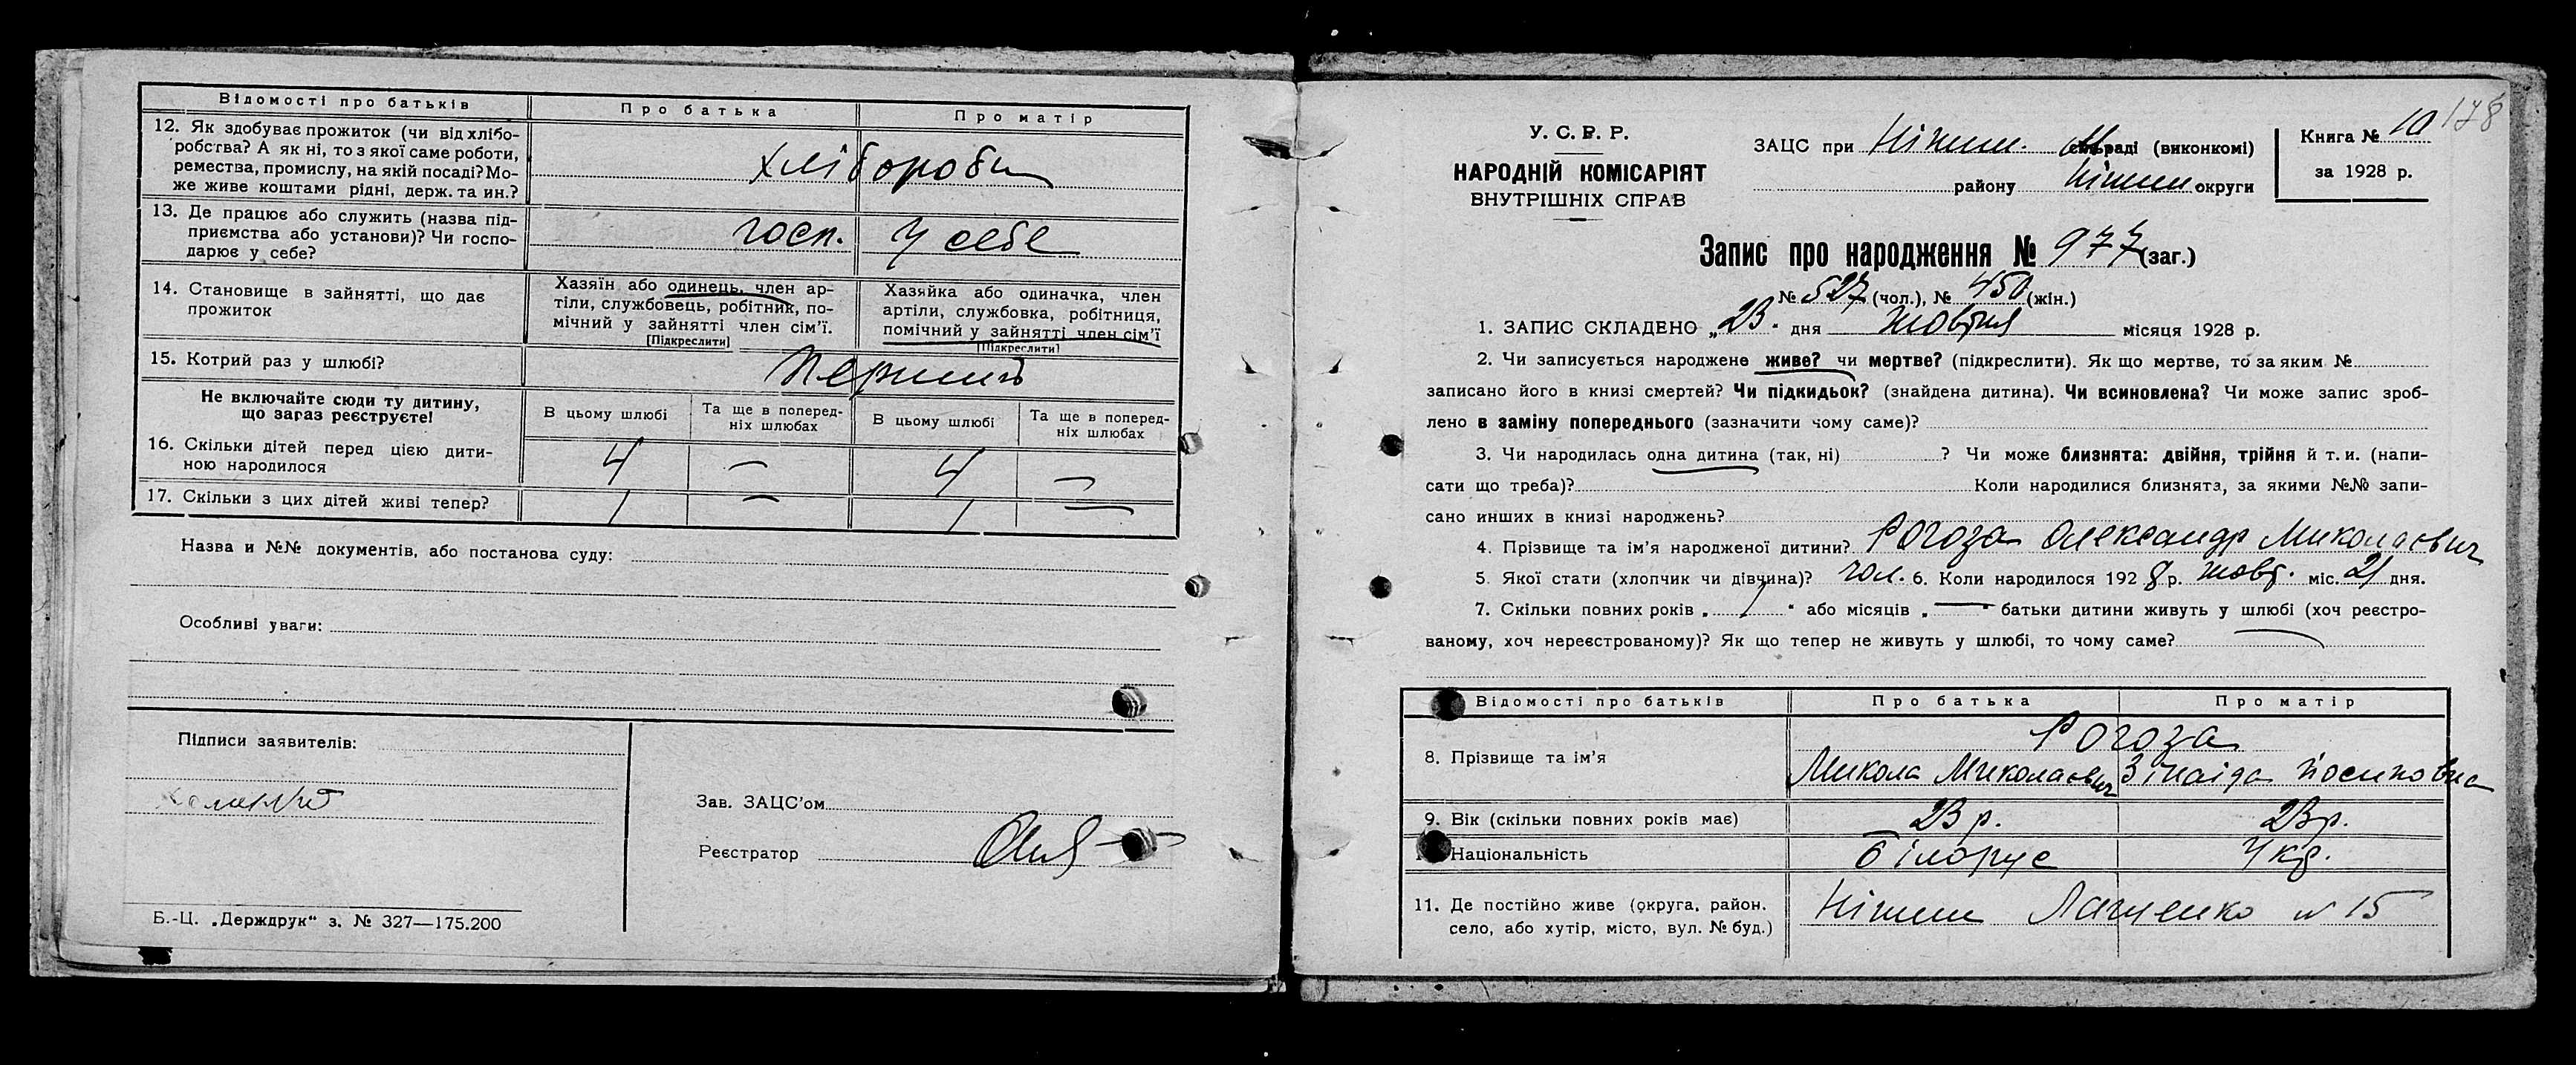 Відомості про батьків
Про батька
Про матір
12. Як здобуває прожиток (чи від хлібо-
робства? А як ні, то з якої саме роботи,
ремества, промислу, на якій посаді? Мо-
же живе коштами рідні, держ. та ин.?
хлібороби
13. Де працює або служить (назва під-
приємства або установи)? Чи госпо-
дарює у себе?
госп. у себе
14. Становище в зайнятті, що дає
прожиток
Хазяїн або одинець, член ар-
тіли, службовець, робітник, по-
мічний у зайнятті член сім'ї.
[Підкреслити]
Хазяйка або одиначка, член
артіли, службовка, робітниця,
помічний у зайнятті член сім'ї
[Підкреслити]
15. Котрий раз у шлюбі?
Перший
Не включайте сюди ту дитину,
що зараз реєструєте!
В цьому шлюбі
Та ще в поперед-
ніх шлюбах
В цьому шлюбі
Та ще в поперед-
ніх шлюбах
16. Скільки дітей перед цією дити-
ною народилося
4 — 4 —
17. Скільки з цих дітей живі тепер?
1 — 1 —
Назва и №№ документів, або постанова суду:
Особливі уваги:
Підписи заявителів:
Зав. ЗАЦС'ом
Реєстратор
Б.-Ц. „Держдрук“ з. № 327—175.200
178
У. С. Р. Р.
НАРОДНІЙ КОМІСАРІЯТ
ВНУТРІШНІХ СПРАВ
ЗАЦС при Ніжин. раді (виконкомі)
району Ніжин округи
Книга № 10
за 1928 р.
Запис про народження № 977 (заг.)
№ 527 (чол.), № 450 (жін.)
1. ЗАПИС СКЛАДЕНО „23“ дня жовтня місяця 1928 р.
2. Чи записується народжене живе? чи мертве? (підкреслити). Як що мертве, то за яким №
записано його в книзі смертей? Чи підкидьок? (знайдена дитина). Чи всиновлена? Чи може запис зроб-
лено в заміну попереднього (зазначити чому саме)?
3. Чи народилась одна дитина (так, ні) ? Чи може близнята: двійня, трійня й т. и. (напи-
сати що треба)? Коли народилися близнята, за якими №№ запи-
сано инших в книзі народжень?
4. Прізвище та ім'я народженої дитини? Рогоза Олександр Миколаєвич
5. Якої стати (хлопчик чи дівчина)? чол. 6. Коли народилося 1928 р. жовт. міс. 21 дня.
7. Скільки повних років „ 7 “ або місяців „ — “ батьки дитини живуть у шлюбі (хоч реєстро-
ваному, хоч нереєстрованому)? Як що тепер не живуть у шлюбі, то чому саме? —
Відомості про батьків
Про батька
Про матір
8. Прізвище та ім'я
Рогоза
Микола Миколаєвич
Зінаїда Йосиповна
9. Вік (скільки повних років має)
23 р.
23 р.
Національність
білорус
укр.
11. Де постійно живе (округа, район.
село, або хутір, місто, вул. № буд.)
Ніжин Лащенко № 15